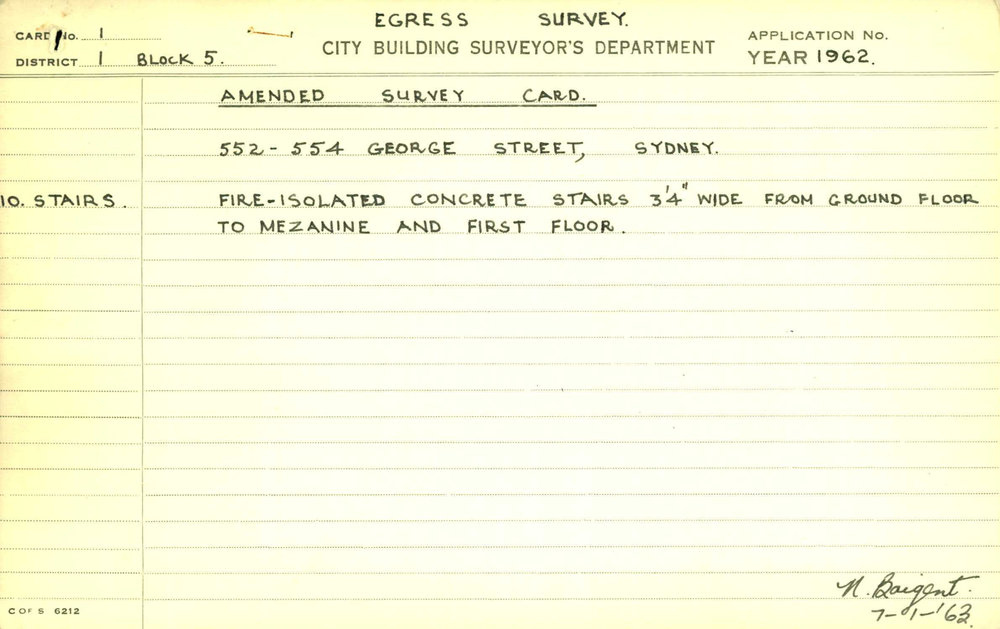 EGRESS SURVEY.
CARD No. 1
CITY BUILDING SURVEYOR'S DEPARTMENT
APPLICATION No.
DISTRICT 1 BLOCK 5.
YEAR 1962.
AMENDED SURVEY CARD.
552-554 GEORGE STREET, SYDNEY.
10. STAIRS. FIRE-ISOLATED CONCRETE STAIRS 3'4" WIDE FROM GROUND FLOOR
TO MEZANINE AND FIRST FLOOR.
N. Baigent.
7-1-'63.
C OF S 6212